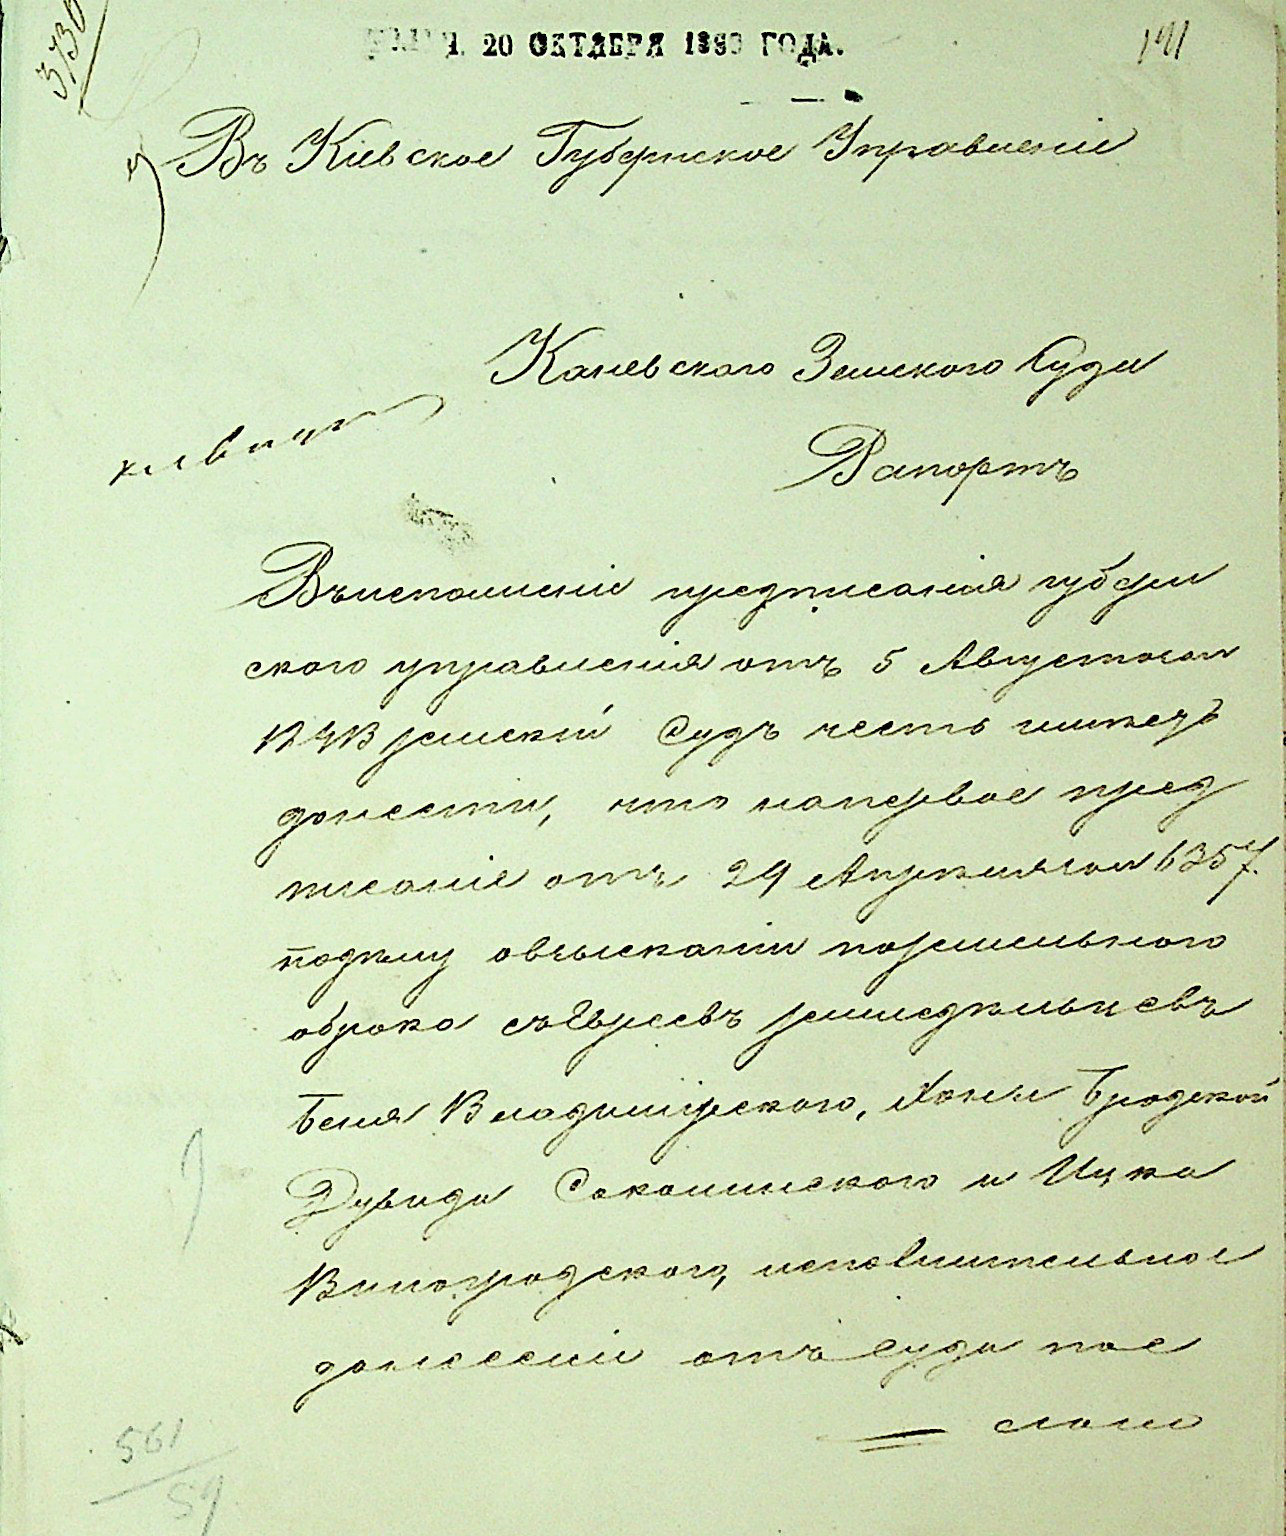 3730
20 ОКТЯБРЯ 1893 ГОДА.
191
Въ Кіевское Губернское Управленіе
Каневского Земского Суда
Рапортъ
Въ исполненіе предписанія губерн
ского управленія отъ 5 Августа за №
земскій Судъ честь имѣетъ
донести, что на первое пред
писаніе отъ 24 Апрѣля за № 6357.
по дѣлу о взысканіи поземельного
оброка съ Евреевъ земледѣльцевъ
Беня Владимірского, Бродской
Дувида Соколинского и Ицка
Виноградского, исполнительное
донесеніе отъ суда пос
лано
561
59